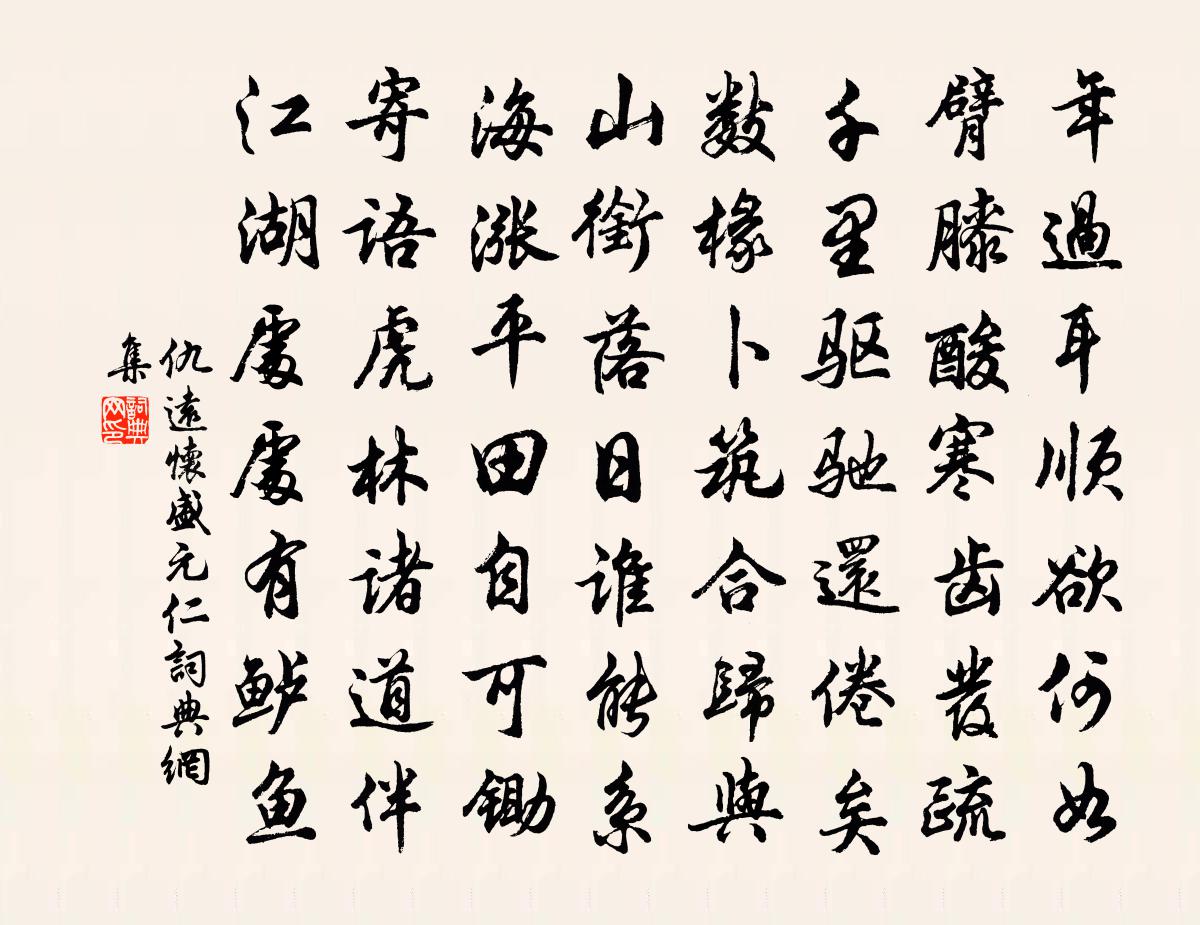 年過耳顺欲何如
臂膝酸寒齿發疏
千里驱驰還倦矣
数椽卜筑合歸與
山銜落日谁能系
海涨平田自可锄
寄语虎林诸道伴
江湖處處有鲈鱼
仇遠懷盛元仁詞典網
集
詞典
网印